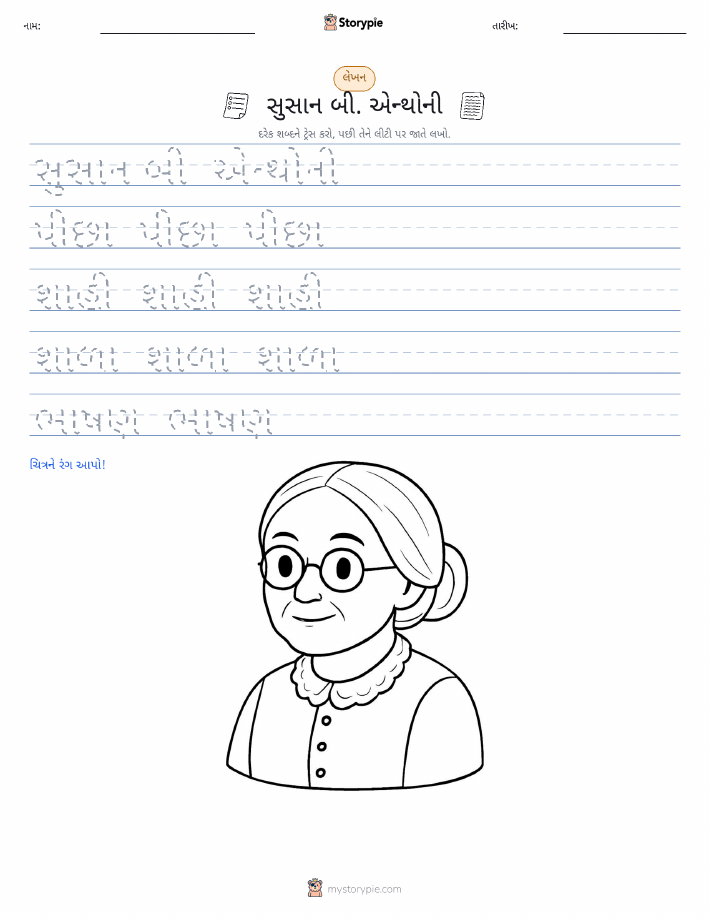 નામ:
Storypie
તારીખ:
લેખન
સુસાન બી. એન્થોની
દરેક શબ્દને ટ્રેસ કરો, પછી તેને લીટી પર જાતે લખો.
સુસાન બી એન્થોની
પીછા પીછા પીછા
શાહી શાહી શાહી
શાળા શાળા શાળા
ભાષણ ભાષણ
ચિત્રને રંગ આપો!
mystorypie.com